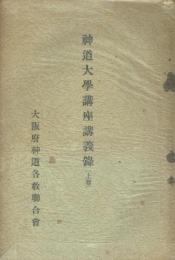 神道大學講座講義錄 上卷
大阪府神道各教聯合會